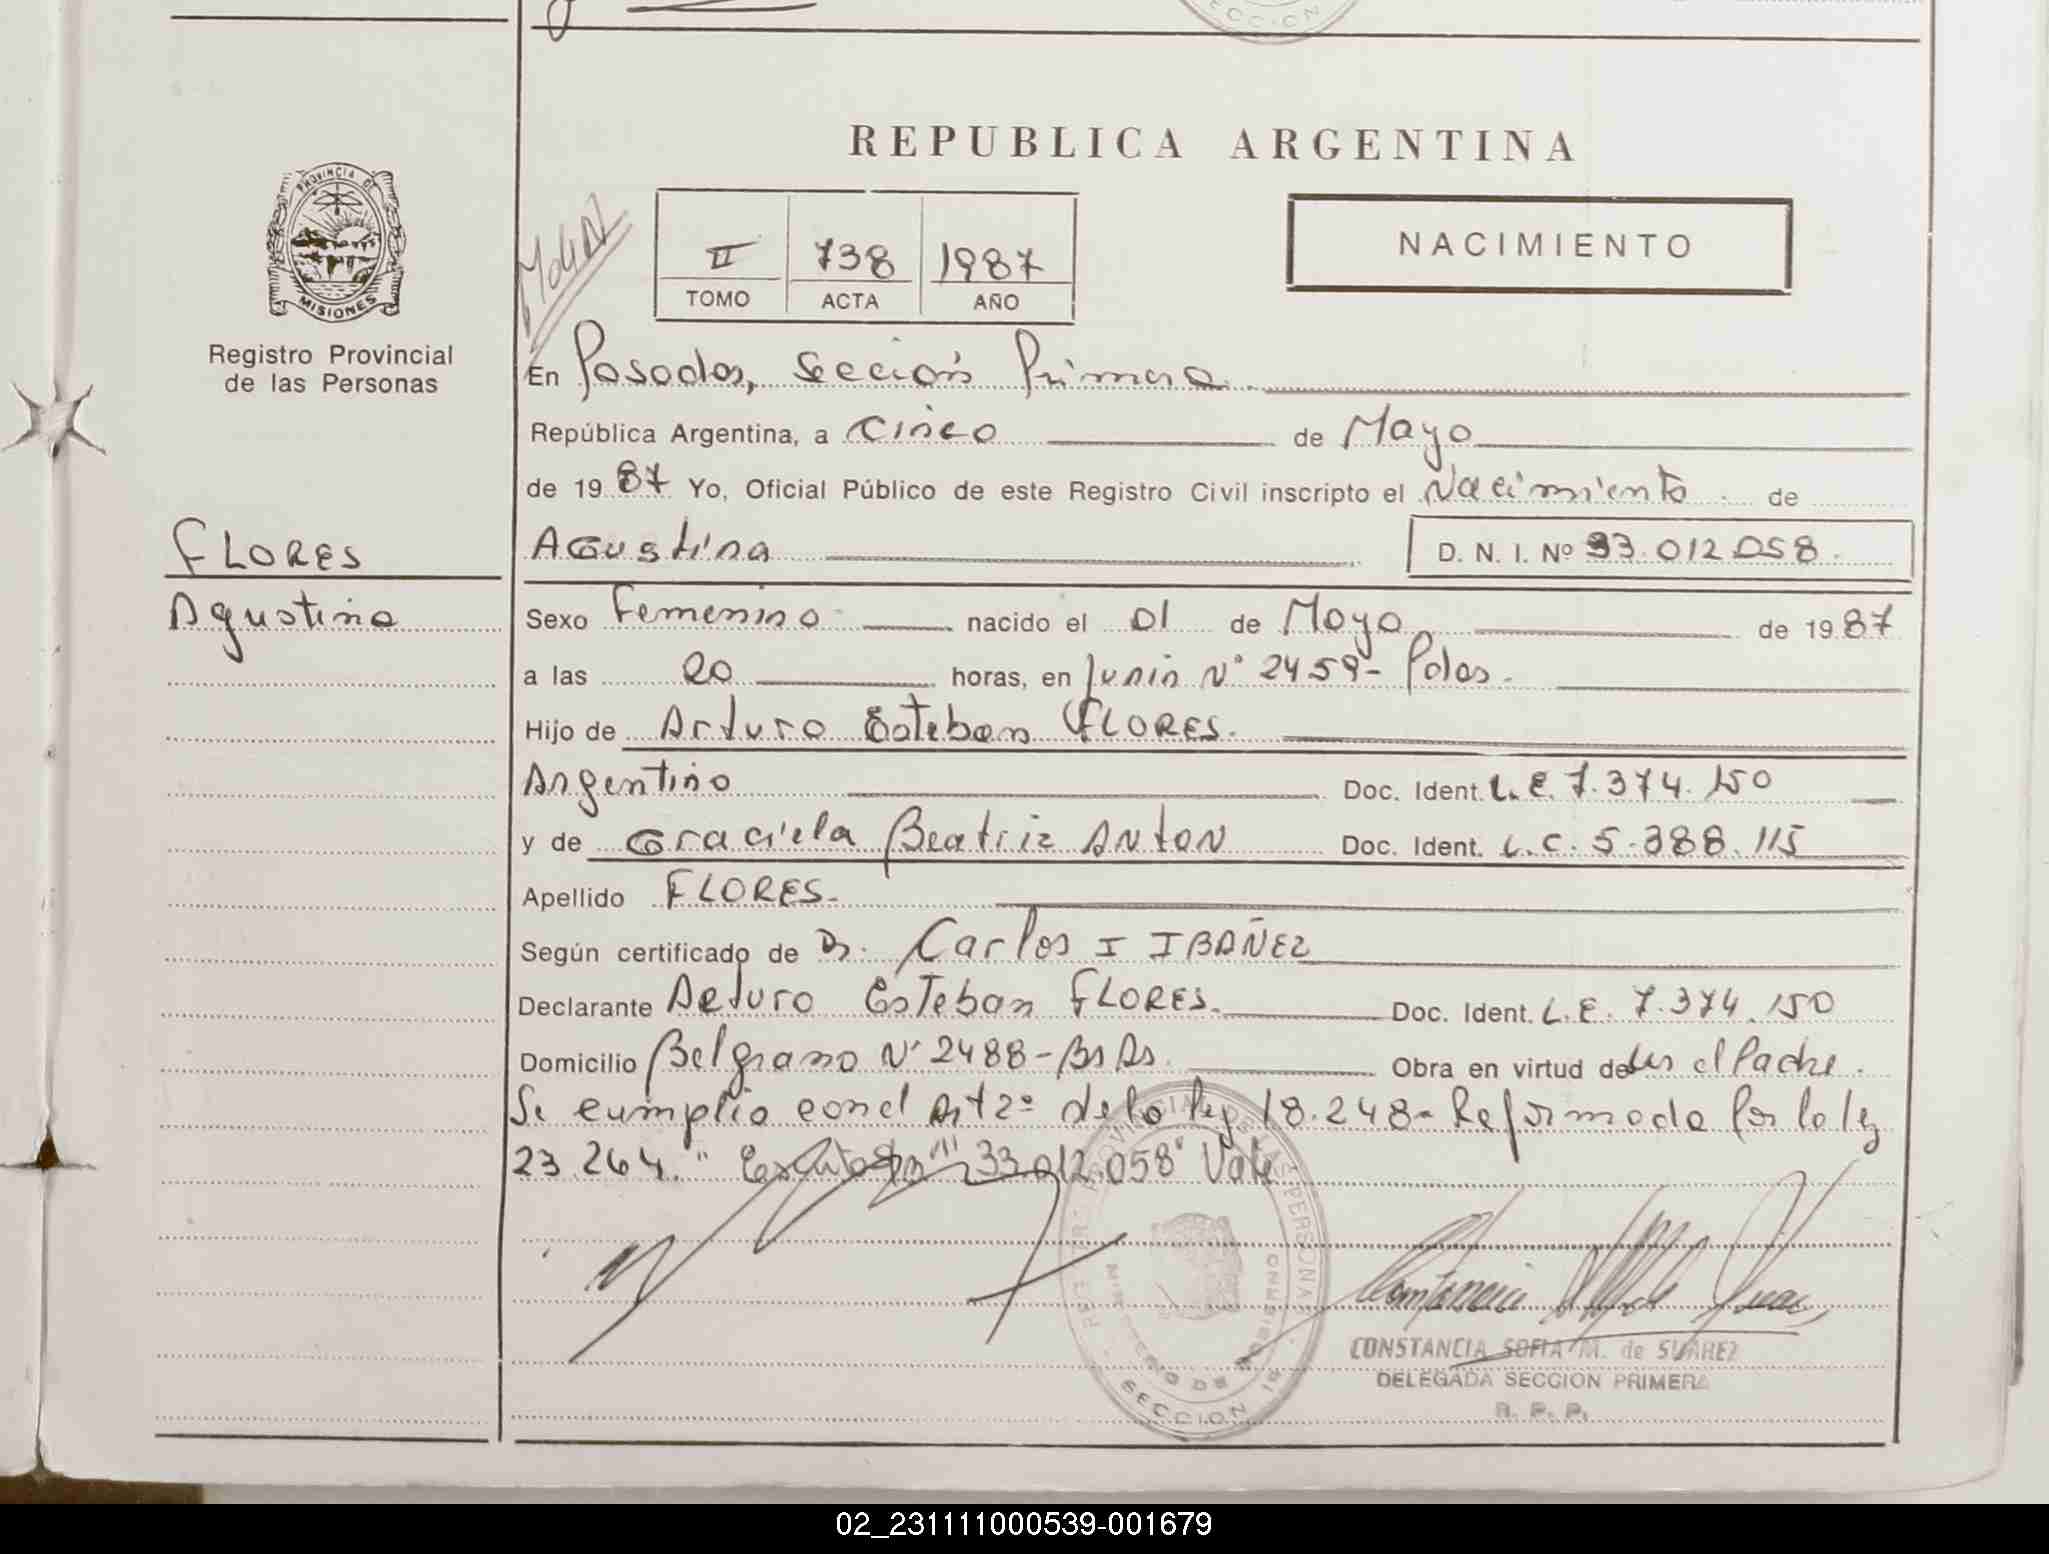 REPUBLICA ARGENTINA
PROVINCIA DE
MISIONES
Registro Provincial
de las Personas
II 738 1987
TOMO ACTA AÑO
NACIMIENTO
En Posadas, Sección Primera
República Argentina, a Cinco de Mayo
de 1987 Yo, Oficial Público de este Registro Civil inscripto el Nacimiento de
FLORES
Agustina
Agustina D. N. I. Nº 33.012.058.
Sexo Femenino nacido el 01 de Mayo de 1987
a las 20 horas, en Junin Nº 2459- Pdas.
Hijo de Arturo Esteban FLORES.
Argentino Doc. Ident. L.E. 7.374.150
y de Graciela Beatriz ANTON Doc. Ident. L.C. 5.388.115
Apellido FLORES.
Según certificado de Dr. Carlos I IBAÑEZ
Declarante Arturo Esteban FLORES. Doc. Ident. L.E. 7.374.150
Domicilio Belgrano Nº 2488-Bs As. Obra en virtud de ser el Padre.
Se cumplio con el Art 2º de la ley 18.248-Reformada por la ley
23.264." "33.012.058" Vale
REGISTRO PROVINCIAL DE LAS PERSONAS
MINISTERIO DE GOBIERNO
SECCION 1a
CONSTANCIA SOFIA M. de SUAREZ
DELEGADA SECCION PRIMERA
R. P. P.
02_231111000539-001679